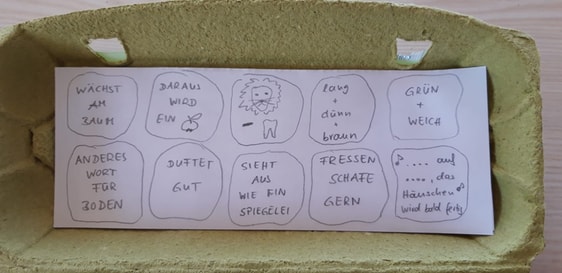 WÄCHST
AM
BAUM
DARAUS
WIRD
EIN
-
lang
+
dünn
+
braun
GRÜN
+
WEICH
ANDERES
WORT
FÜR
BODEN
DUFTET
GUT
SIEHT
AUS
WIE EIN
SPIEGELEI
FRESSEN
SCHAFE
GERN
♪ .... auf
...., das
Häuschen ♪
wird bald fertig